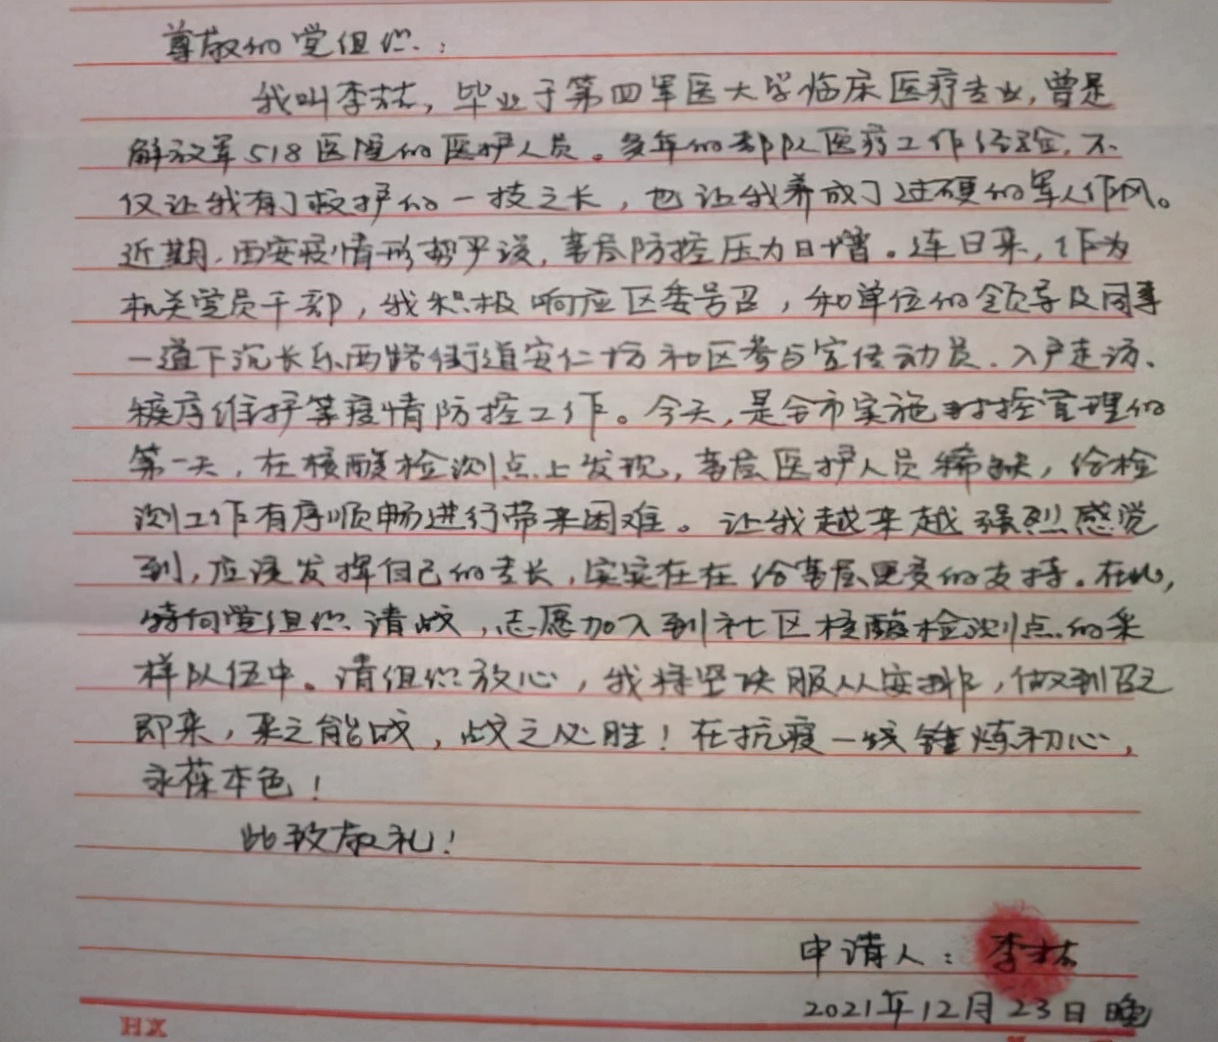 尊敬的党组织：
我叫李喆，毕业于第四军医大学临床医疗专业，曾是
解放军518医院的医护人员。多年的部队医疗工作经验，不
仅让我有了救护的一技之长，也让我养成了过硬的军人作风。
近期，西安疫情形势严峻，基层防控压力日增。连日来，作为
机关党员干部，我积极响应区委号召，和单位的领导及同事
一道下沉长乐西路街道安仁坊社区参与宣传动员、入户走访、
秩序维护等疫情防控工作。今天，是全市实施封控管理的
第一天，在核酸检测点上发现，基层医护人员稀缺，给检
测工作有序顺畅进行带来困难。让我越来越强烈感觉
到，应该发挥自己的专长，实实在在给基层更多的支持。在此，
特向党组织请战，志愿加入到社区核酸检测点的采
样队伍中。请组织放心，我将坚决服从安排，做到召之
即来，来之能战，战之必胜！在抗疫一线锤炼初心，
永葆本色！
此致敬礼！
申请人：李喆
2021年12月23日晚
HX